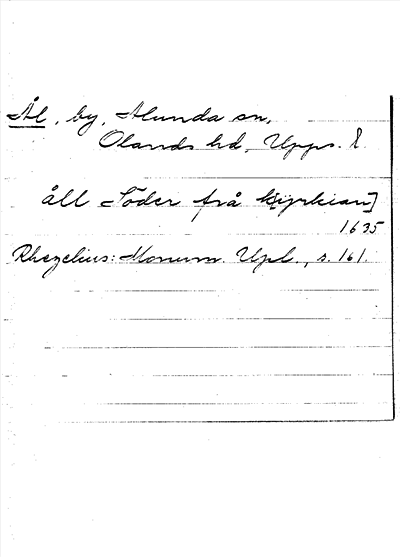 Ål, by, Alunda sn,
Olands hd, Upps. l
åll Söder frå k[yrkian]
1635
Rhezelius: Monum. Upl., s. 161.